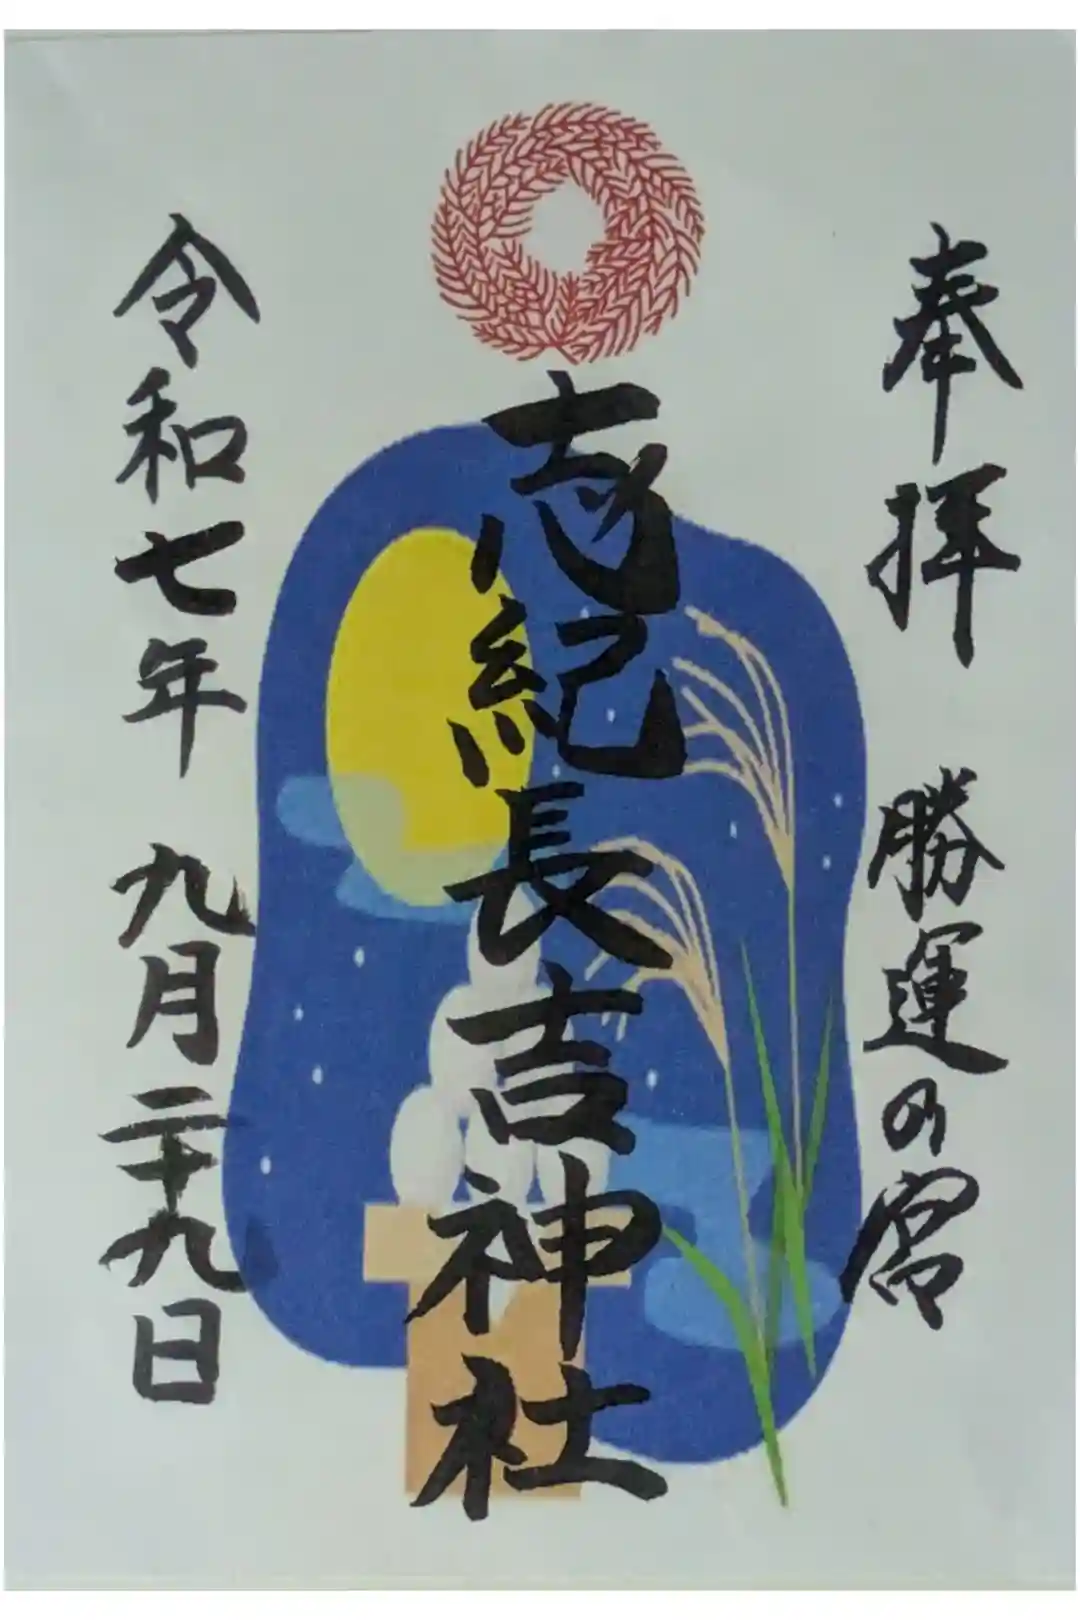 奉拝 勝運の宮
志紀長吉神社
令和七年 九月二十九日